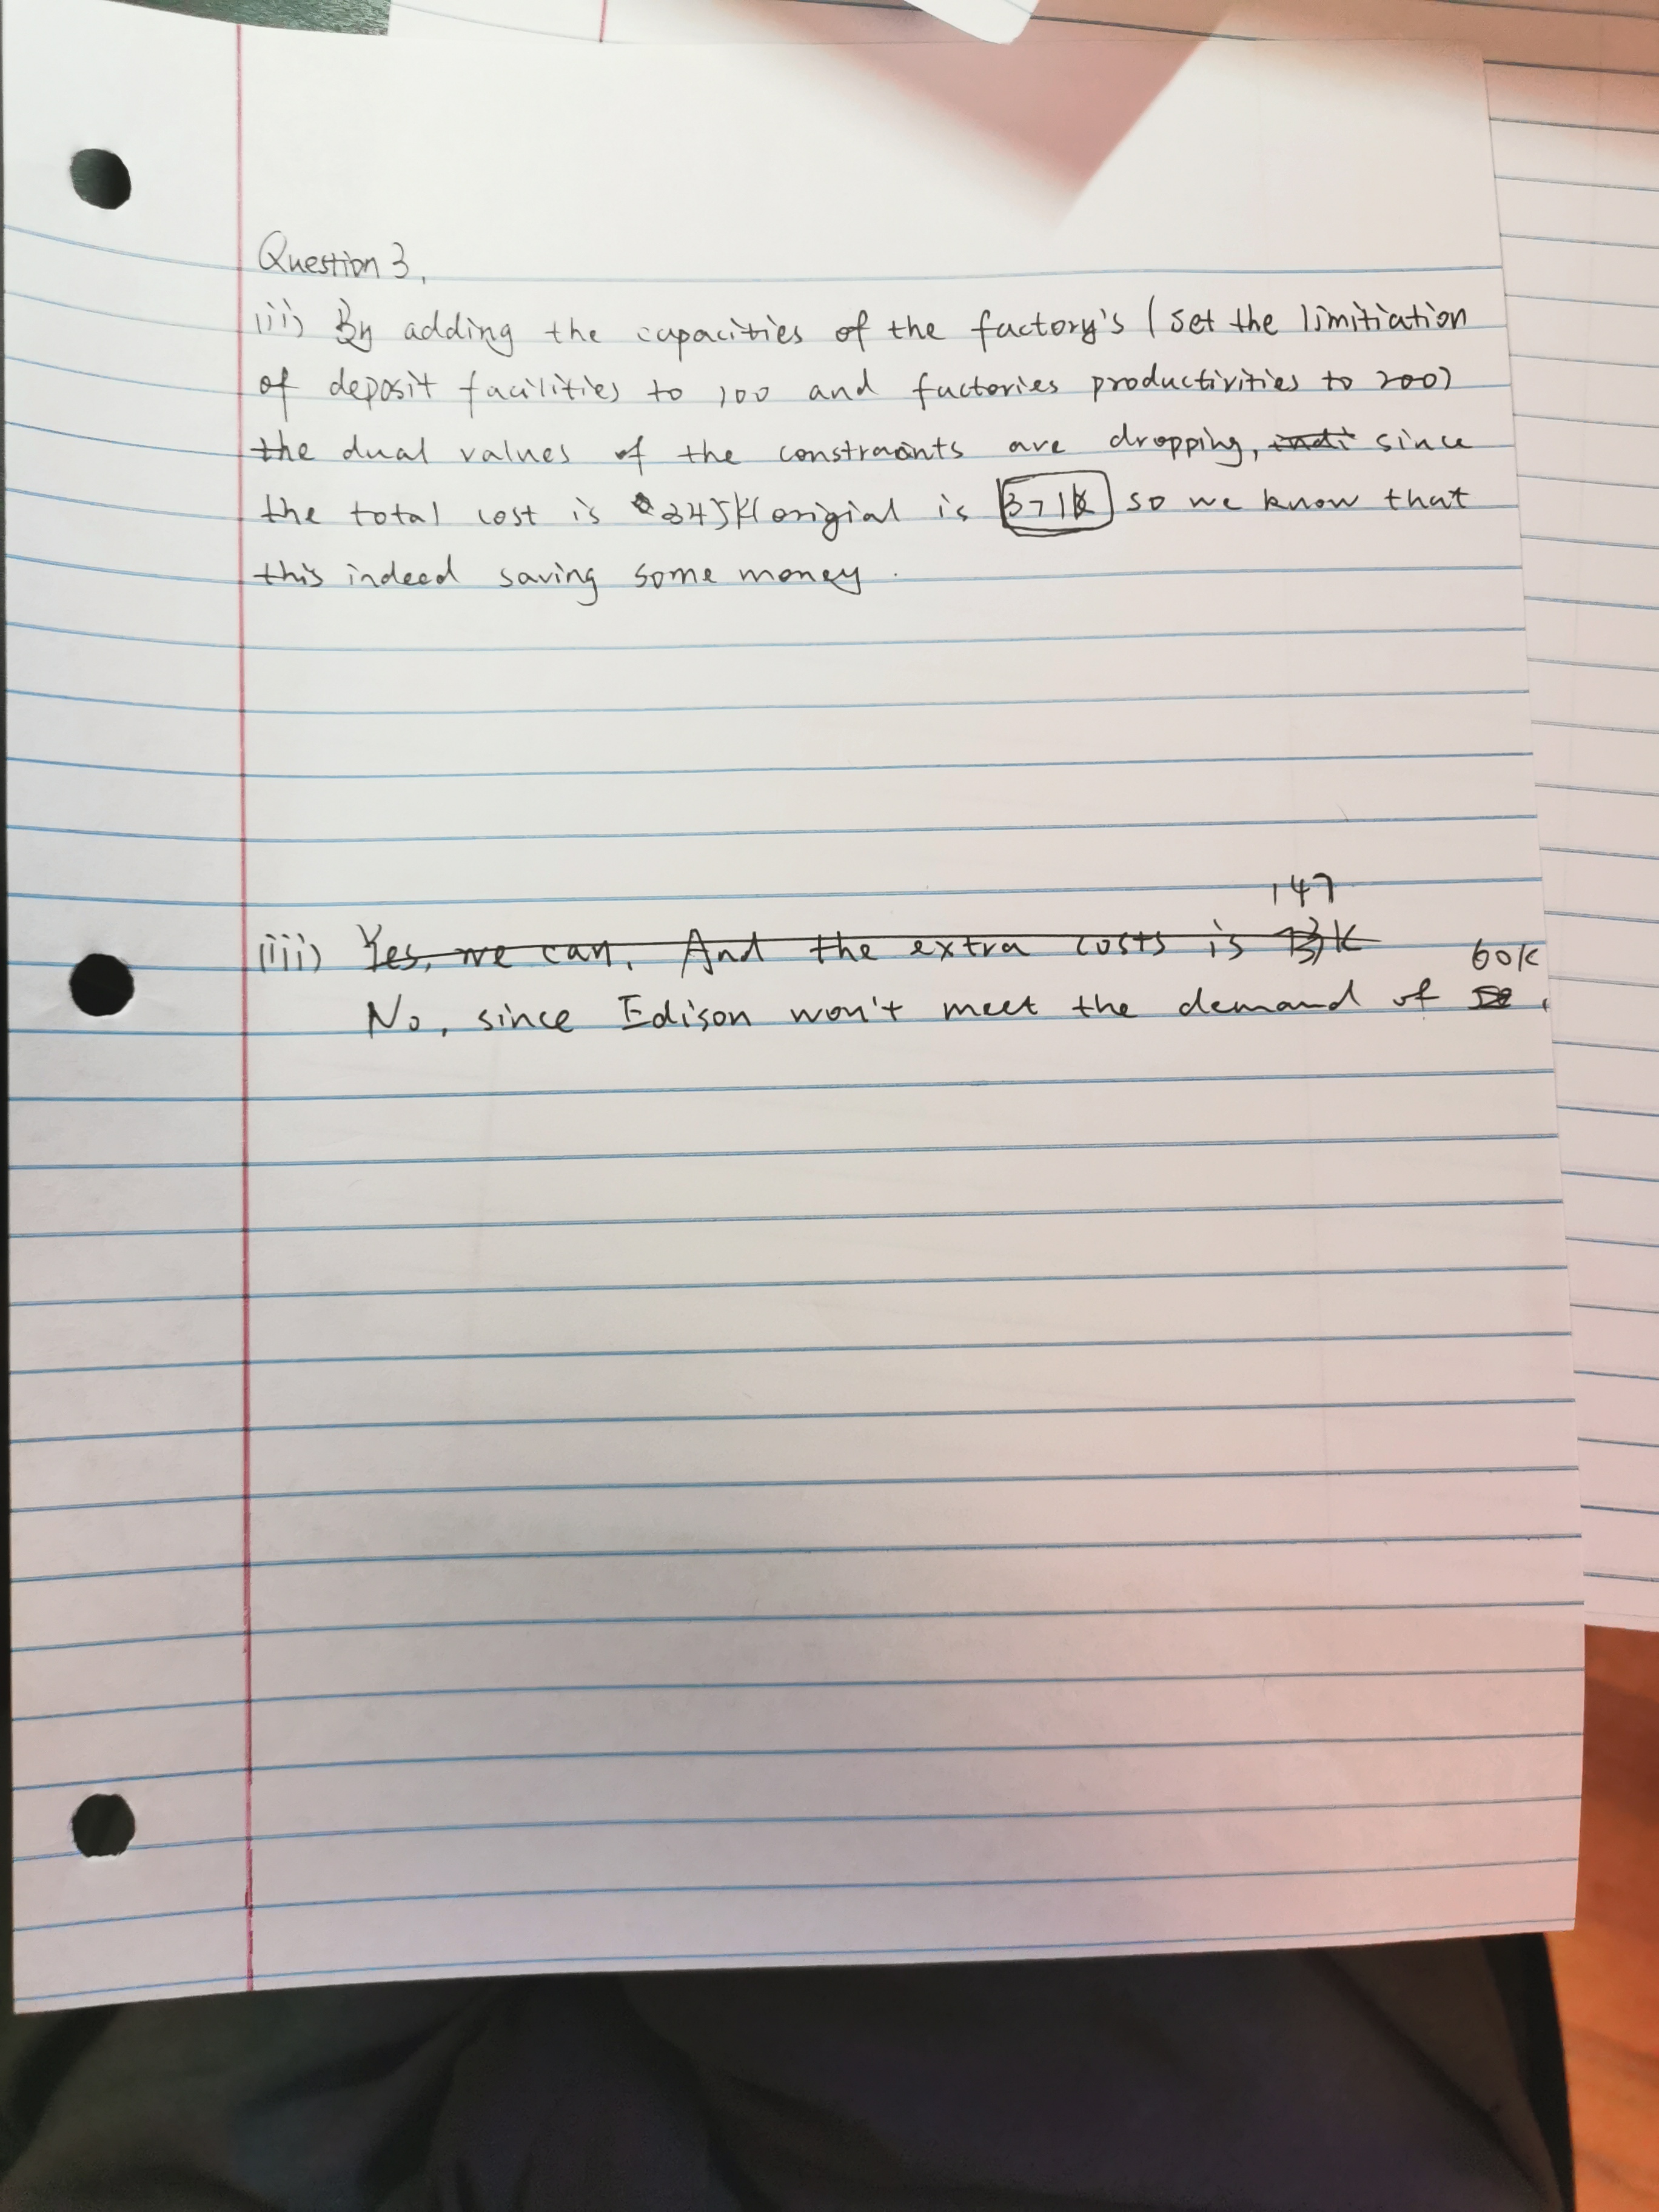 Question 3,
(ii) By adding the capacities of the factory's (set the limitiation
of deposit facilities to 100 and factories productivities to 200)
the dual values of the constraints are dropping, indi since
the total cost is 345K(origial is 371K so we know that
this indeed saving some money.
147
(iii) Yes, we can. And the extra costs is K
60K
No, since Edison won't meet the demand of .